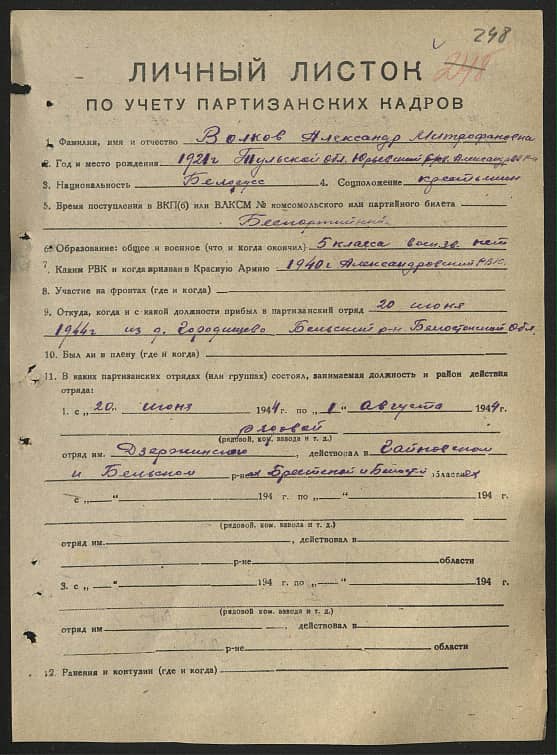 248
248
ЛИЧНЫЙ ЛИСТОК
ПО УЧЕТУ ПАРТИЗАНСКИХ КАДРОВ
1. Фамилия, имя и отчество Волков Александр Митрофанович
2. Год и место рождения 1921г Тульской Обл.
3. Национальность Белорусс 4. Соцположение крестьянин
5. Время поступления в ВКП(б) или ВЛКСМ № комсомольского или партийного билета
Беспартийный
6. Образование: общее и военное (что и когда окончил) 5 класса нет
7. Каким РВК и когда призван в Красную Армию 1940г Александровский РВК.
8. Участие на фронтах (где и когда)
9. Откуда, когда и с какой должности прибыл в партизанский отряд 20 июня
1944г из д. Городищево Бельский р-н Белостокской Обл.
10. Был ли в плену (где и когда)
11. В каких партизанских отрядах (или группах) состоял, занимаемая должность и район действия
отряда:
1. с „20" июня 1944 г. по „1" августа 1944 г.
рядовой
(рядовой, ком. взвода и т. д.)
отряд им. Дзержинского, действовал в Гайновском
и Бельском р-нах Брестской и области
с „ " 194 г. по „ " 194 г.
(рядовой, ком. взвода и т. д.)
отряд им. , действовал в
р-не области
3. с „ " 194 г. по „ " 194 г.
(рядовой, ком. взвода и т. д.)
отряд им , действовал в
р-не области
12. Ранения и контузии (где и когда)